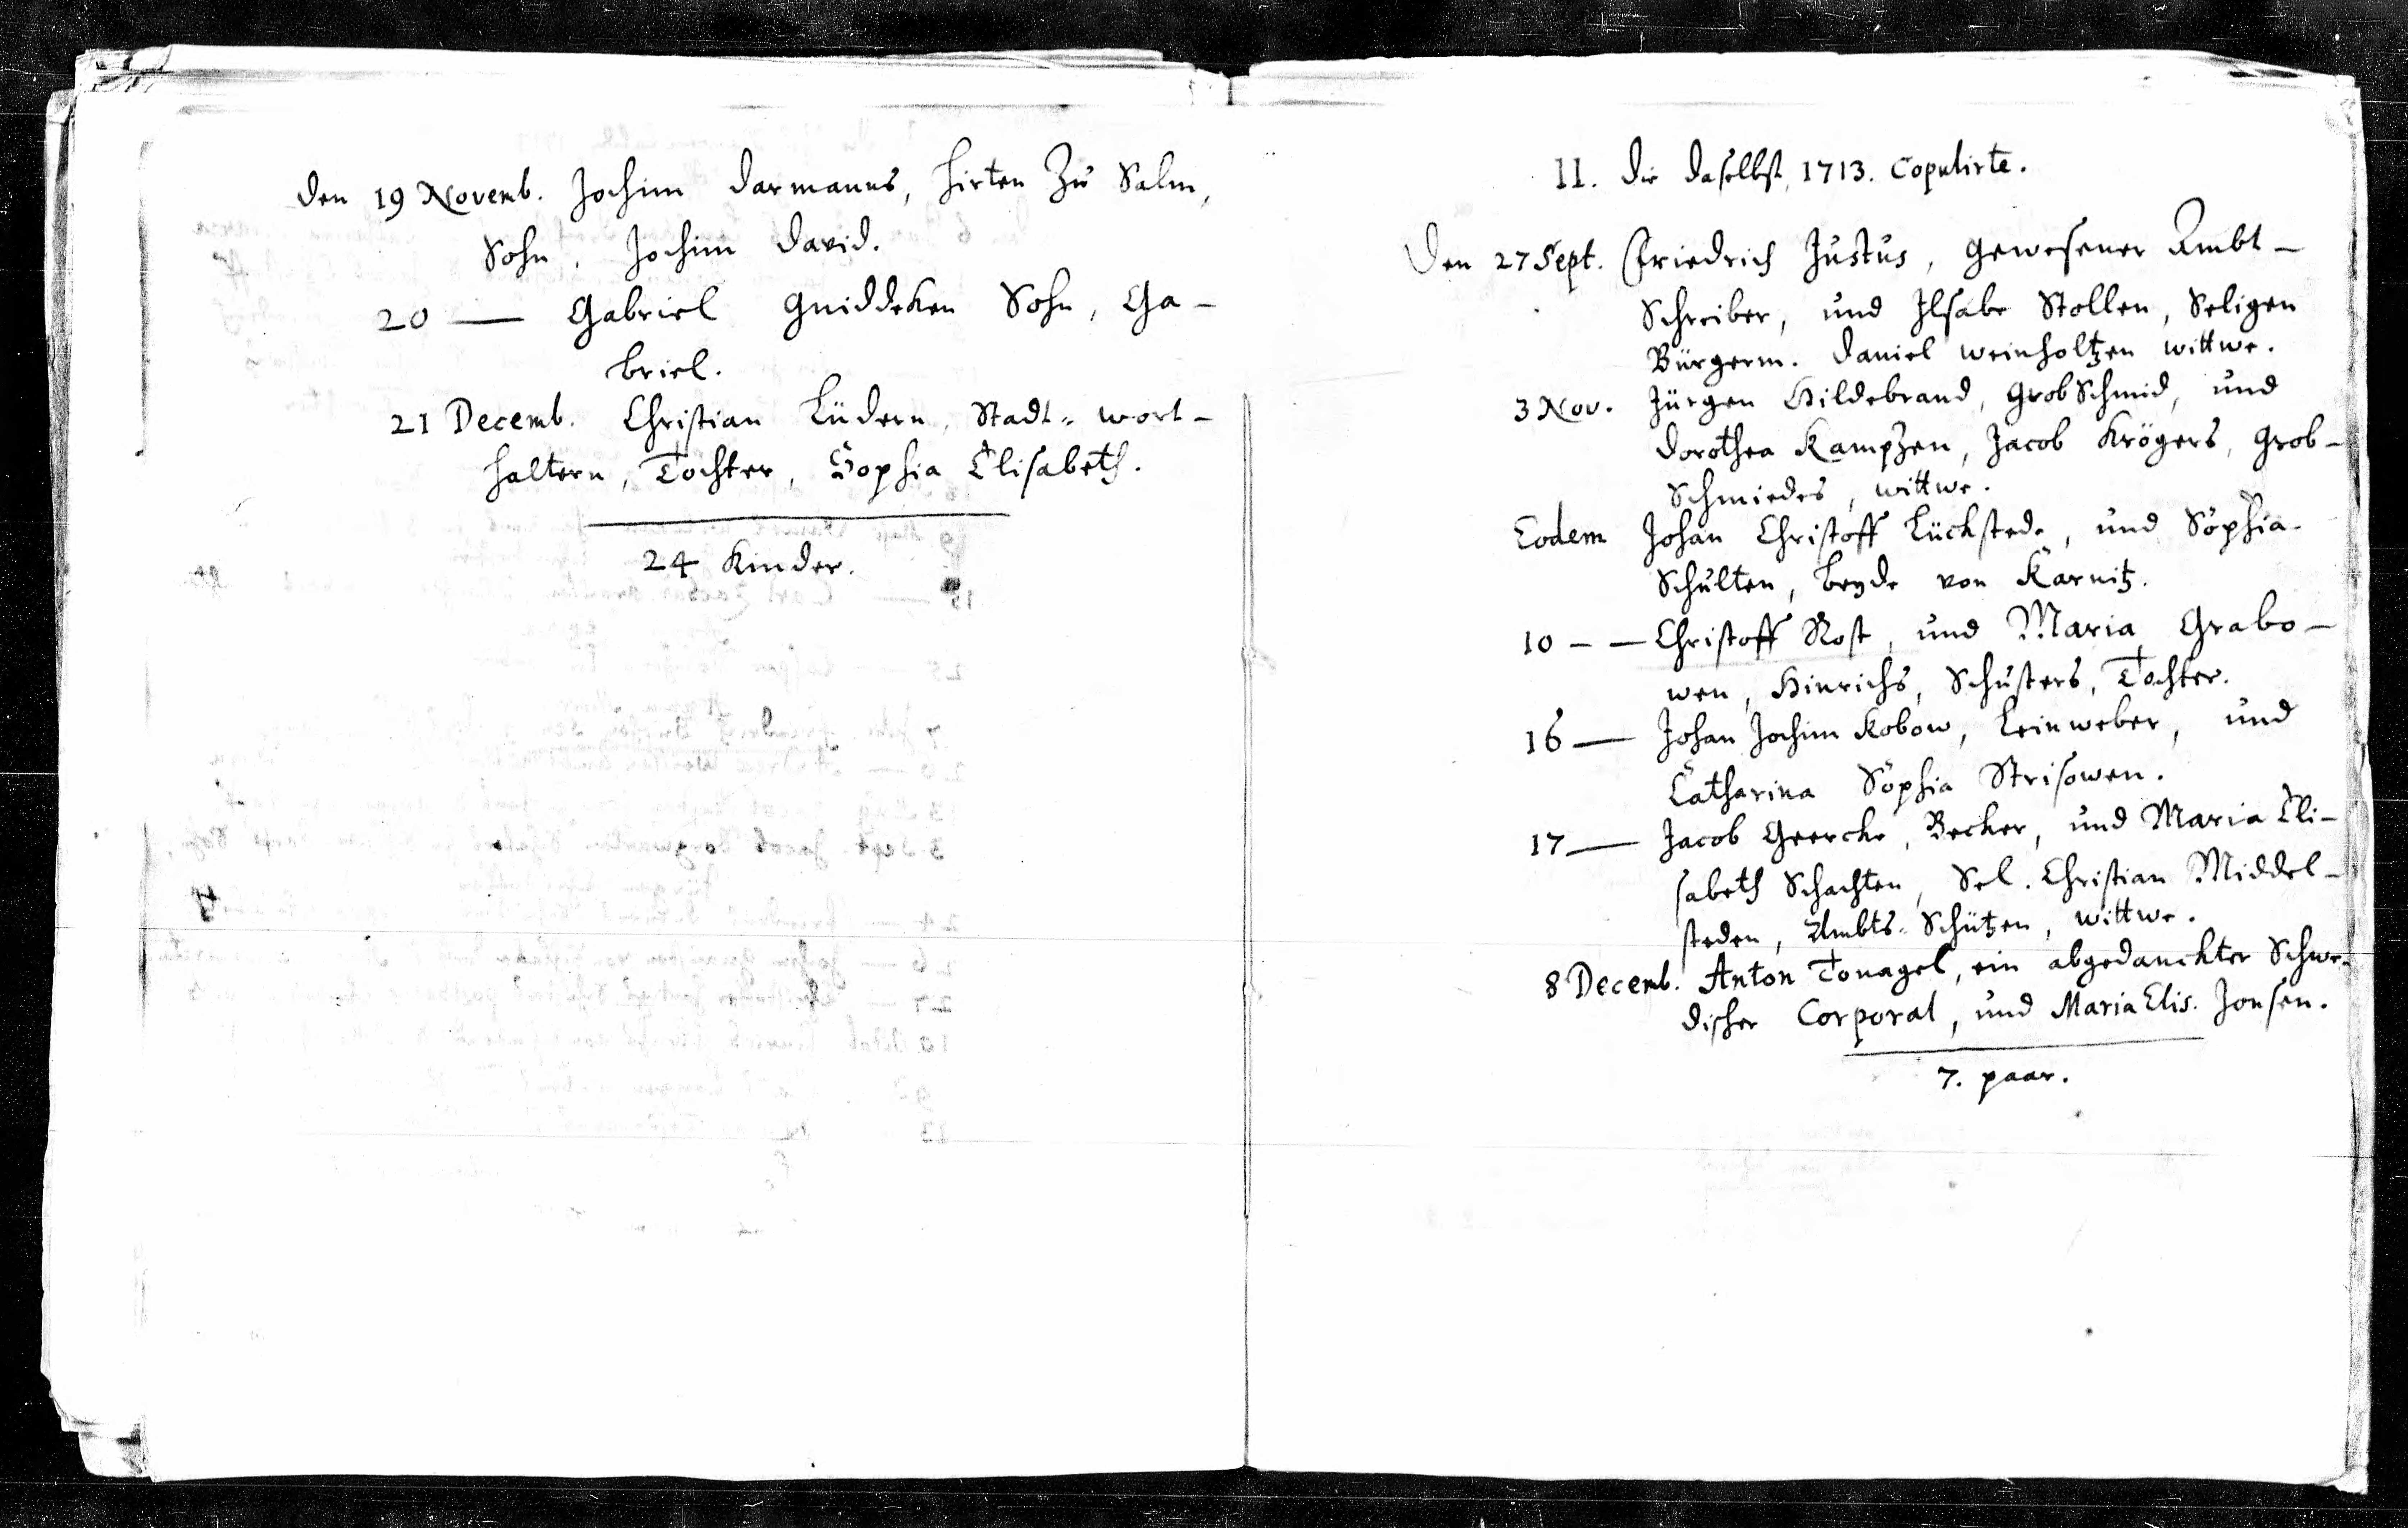 Den 19 Novemb. Jochim Darmanns, Hirten zu Salm,
Sohn, Jochim David.
20 — Gabriel Gniddeken Sohn, Ga-
briel.
21 Decemb. Christian Lüdern, Stadt- wort-
haltern, Tochter, Sophia Elisabeth.
24 Kinder.
II. Die daselbst, 1713. Copulirte.
Den 27 Sept. Friedrich Justus, gewesener Ambt-
Schreiber, und Ilsabe Stollen, Seligen
Bürgerm. Daniel Weinholtzen wittwe.
3 Nov. Jürgen Hildebrand, GrobSchmid, und
Dorothea Kampzen, Jacob Krögers, Grob-
Schmiedes, wittwe.
Eodem Johan Christoff Lückstede, und Sophia
Schulten, beyde von Karnitz.
10 - — Christoff Rost, und Maria Grabo-
wen, Hinrichs, Schusters, Tochter.
16 — Johan Jochim Kobow, Leinweber, und
Catharina Sophia Strisowen.
17 — Jacob Geercke, Becker, und Maria Eli-
sabeth Schachten, Sel. Christian Middel-
steden, Ambts-Schützen, wittwe.
8 Decemb. Anton Tonagel, ein abgedanckter Schwe-
discher Corporal, und Maria Elis. Jonsen.
7. paar.